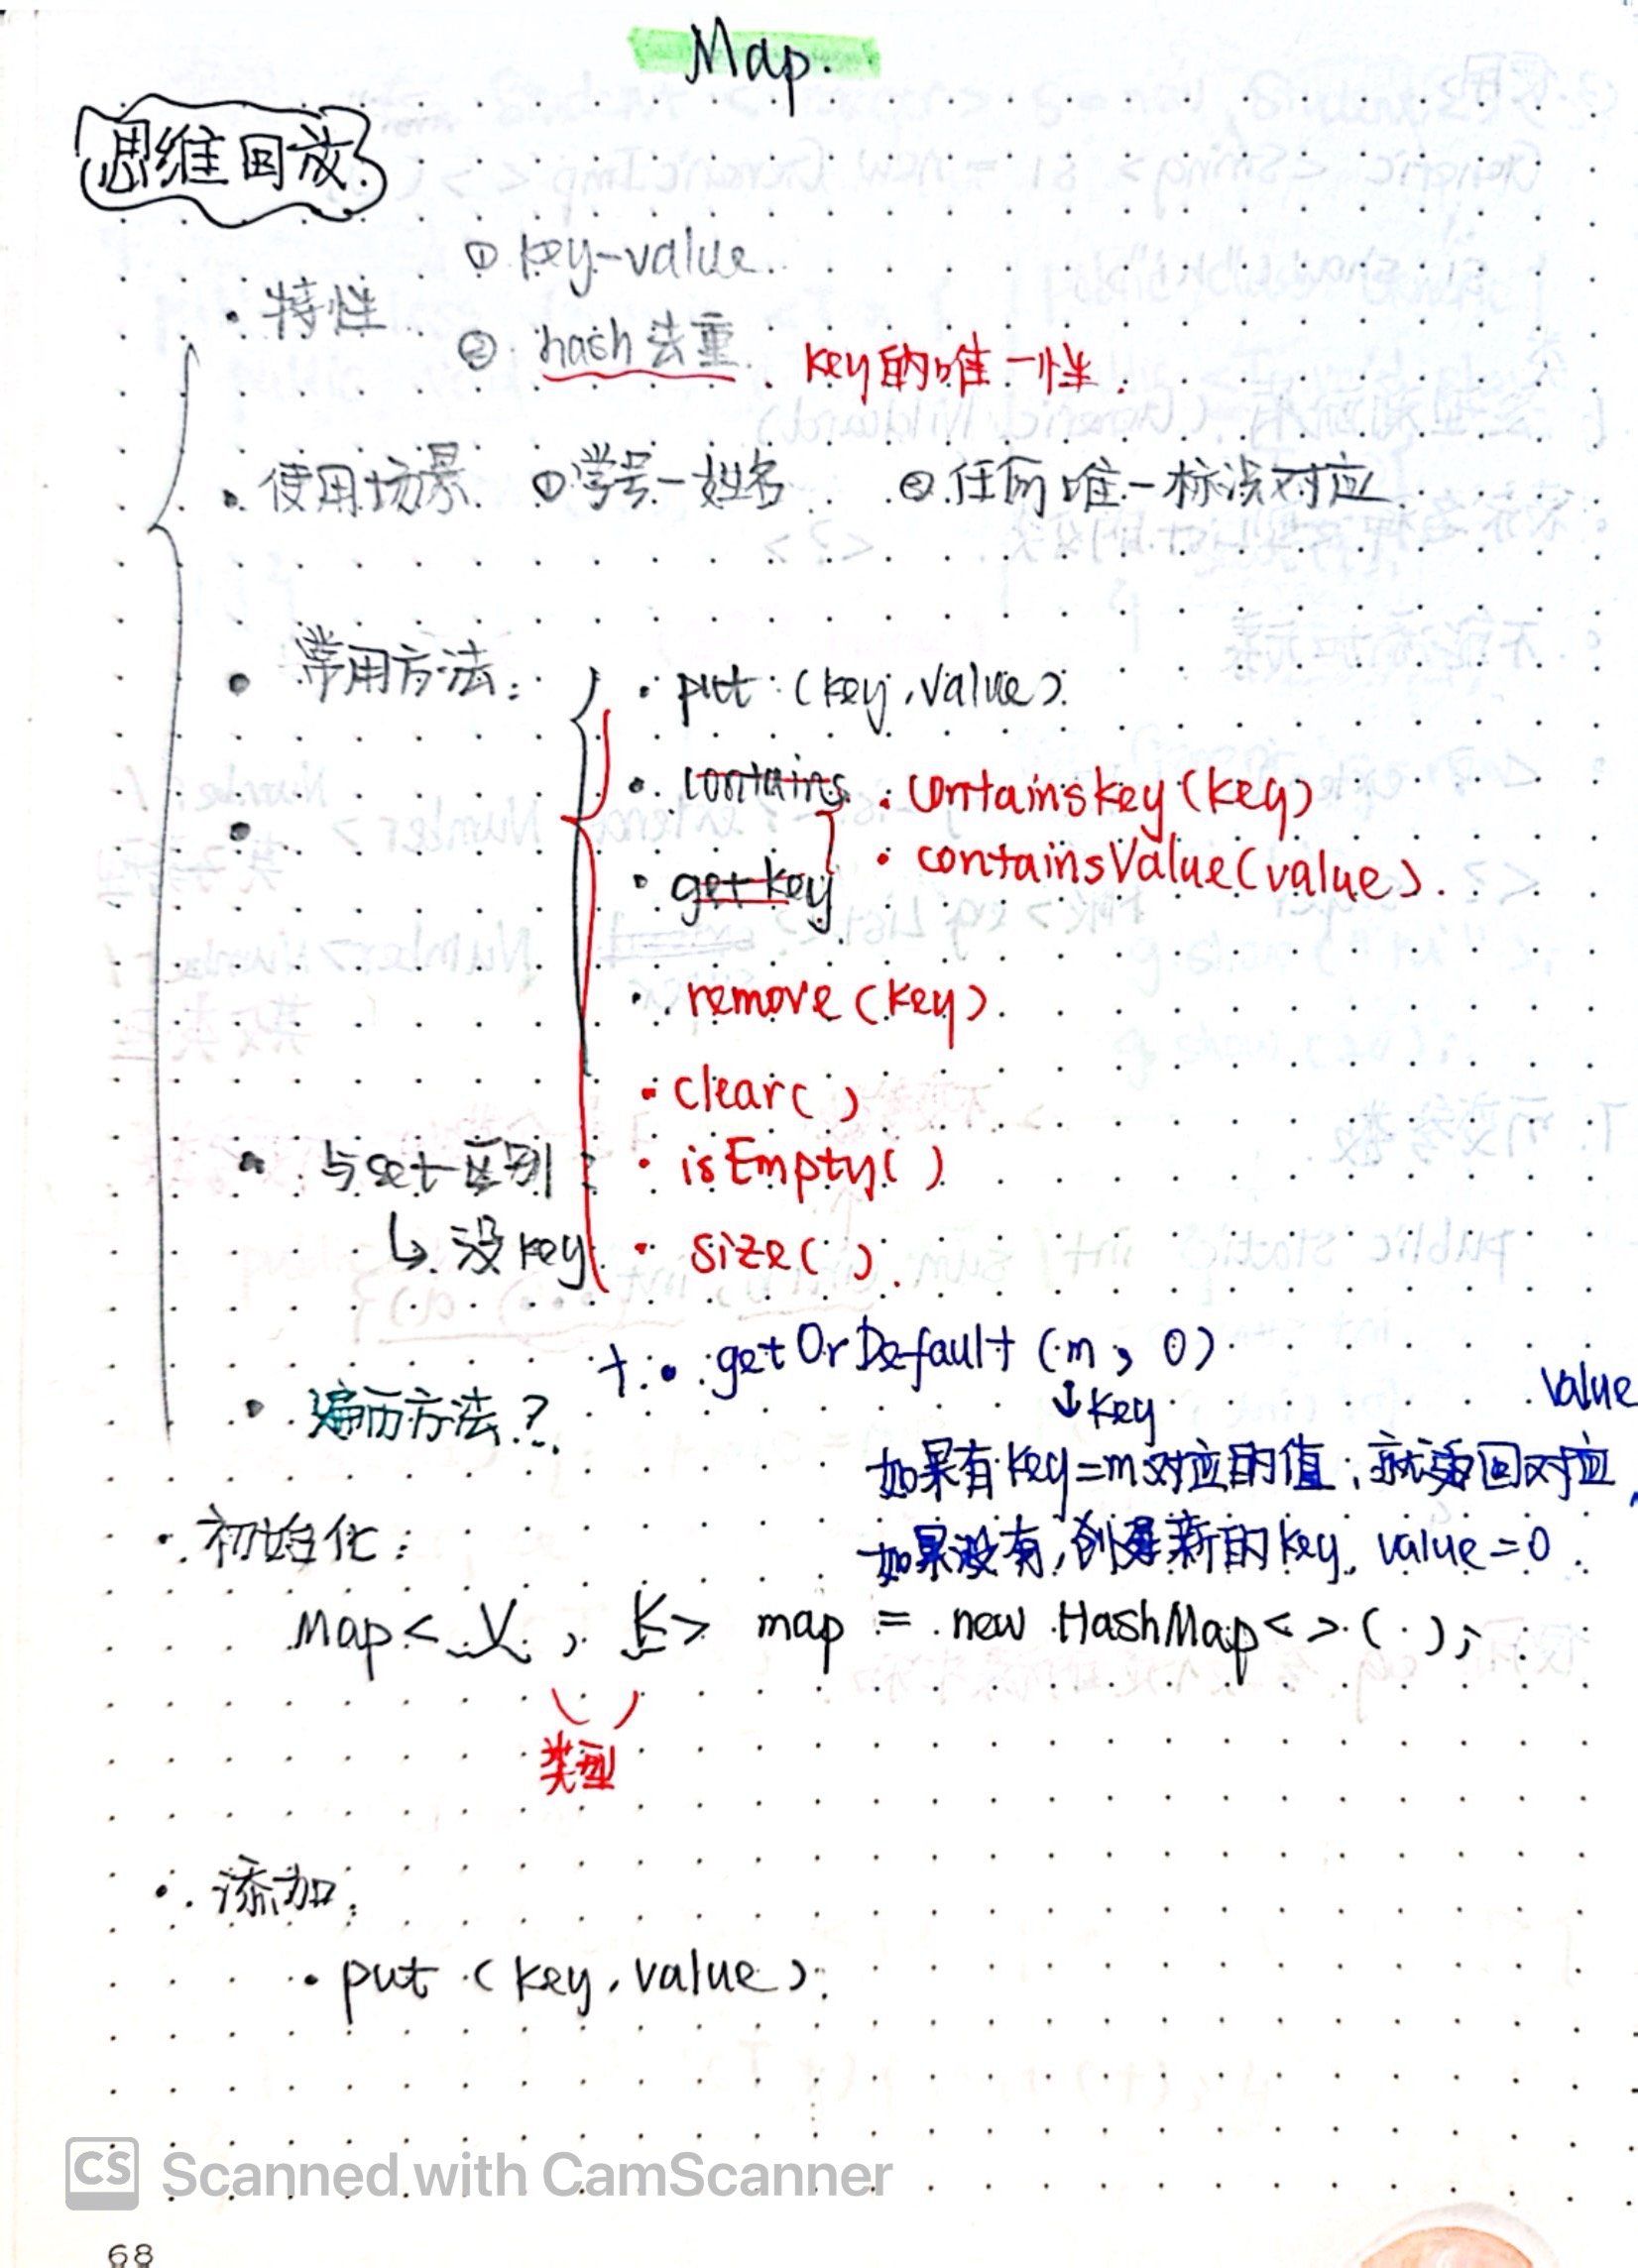 Map.
思维回放
① key-value
· 特性
② hash去重 key的唯一性
· 使用场景 ①学号-姓名 ②任何唯一标识对应
· 常用方法:
· put (key, value)
· contains · containskey (key)
· containsValue(value)
· get key
· remove (key)
· clear( )
· isEmpty( )
· 与set区别:
↳ 没key
· size( )
+ · getOrDefault (m, 0)
↓key
value
· 遍历方法?
如果有key=m对应的值, 就返回对应
如果没有,创建新的key, value=0
· 初始化:
Map< V , K> map = new HashMap<>( );
类型
· 添加:
· put (key, value)
CS Scanned with CamScanner
68